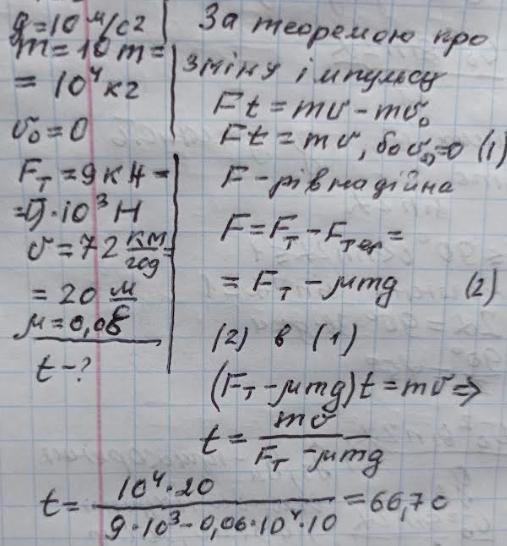 g=10 м/с2
m=10 т=
=10⁴ кг
v₀=0
Fт=9кН=
=9·10³ Н
v=72 км/год=
=20 м/с
μ=0,06
t-?
За теоремою про
зміну імпульсу
Ft=mv-mv₀
Ft=mv, бо v₀=0 (1)
F-рівнодійна
F=Fт-Fтер=
=Fт-μmg (2)
(2) в (1)
(Fт-μmg)t=mv⇒
t=mv/(Fт-μmg)
t=10⁴·20/(9·10³-0,06·10⁴·10)=66,7с